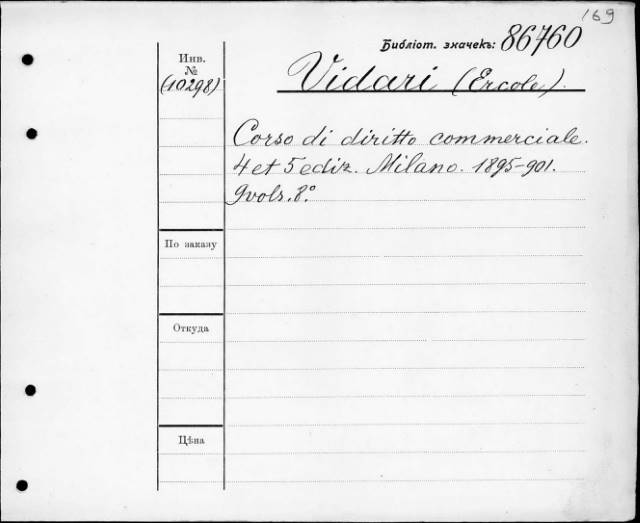 169
Библіот. значекъ: 86760
Инв.
№
(10298)
Vidari (Ercole).
Corso di diritto commerciale.
4 et 5 ediz. Milano. 1895-901.
9 vols. 8.º
По заказу
Откуда
Цѣна